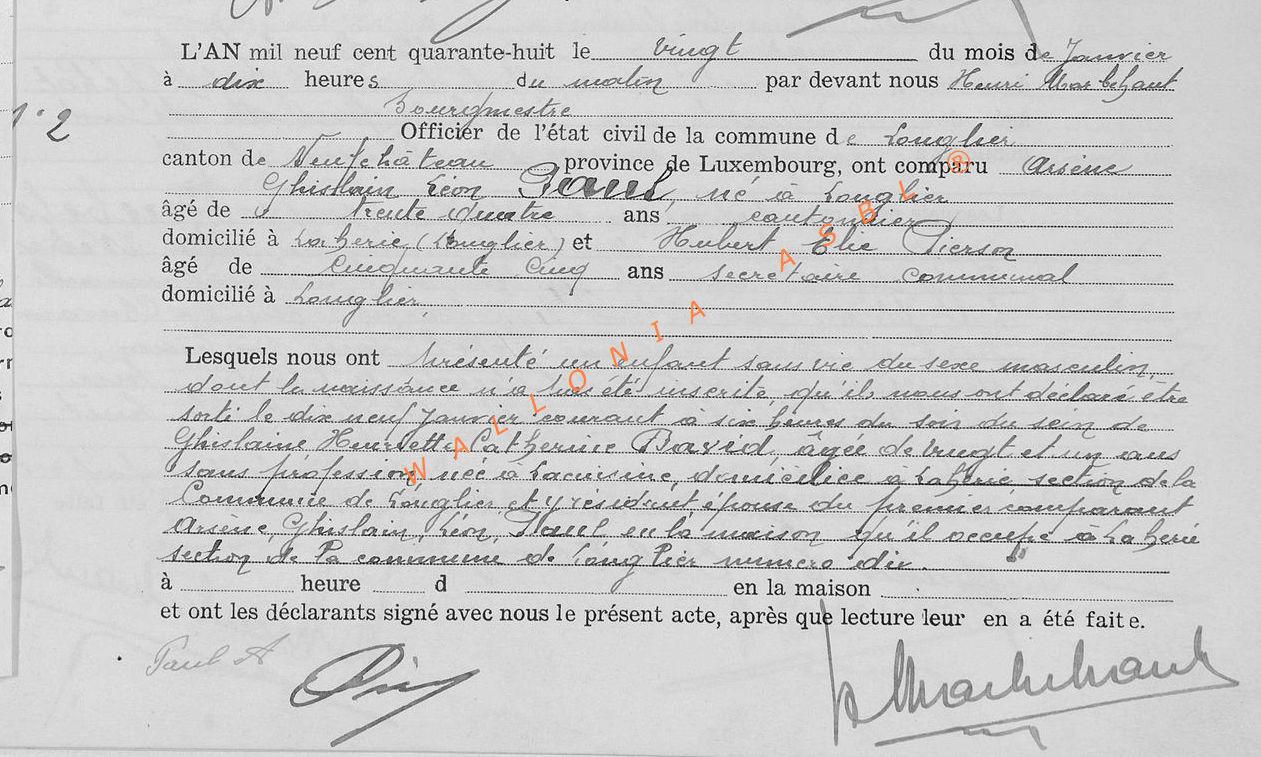 L'AN mil neuf cent quarante-huit le vingt du mois de Janvier
à dix heures du matin par devant nous Henri Marbehant
bourgmestre
Nº 2
Officier de l'état civil de la commune de Longlier
canton de Neufchâteau province de Luxembourg, ont comparu Arsène
Ghislain Léon Paul, né à Longlier
âgé de trente quatre ans cantonnier
domicilié à Laherie (Longlier) et Hubert Elie Pierson
âgé de cinquante cinq ans secrétaire communal
domicilié à Longlier
Lesquels nous ont présenté un enfant sans vie du sexe masculin,
dont la naissance n'a pas été inscrite, qu'ils nous ont déclaré être
sorti le dix neuf Janvier courant à six heures du soir du sein de
Ghislaine Henriette Catherine David, âgée de vingt et un ans
sans profession, née à Lacuisine, domiciliée à Laherie section de la
Commune de Longlier et y résidant, épouse du premier comparant
Arsène, Ghislain, Léon, Paul, en la maison qu'il occupe à Laherie
section de la commune de Longlier numéro dix.
à heure d en la maison
et ont les déclarants signé avec nous le présent acte, après que lecture leur en a été faite.
Paul A
WALLONIA ASBL ®